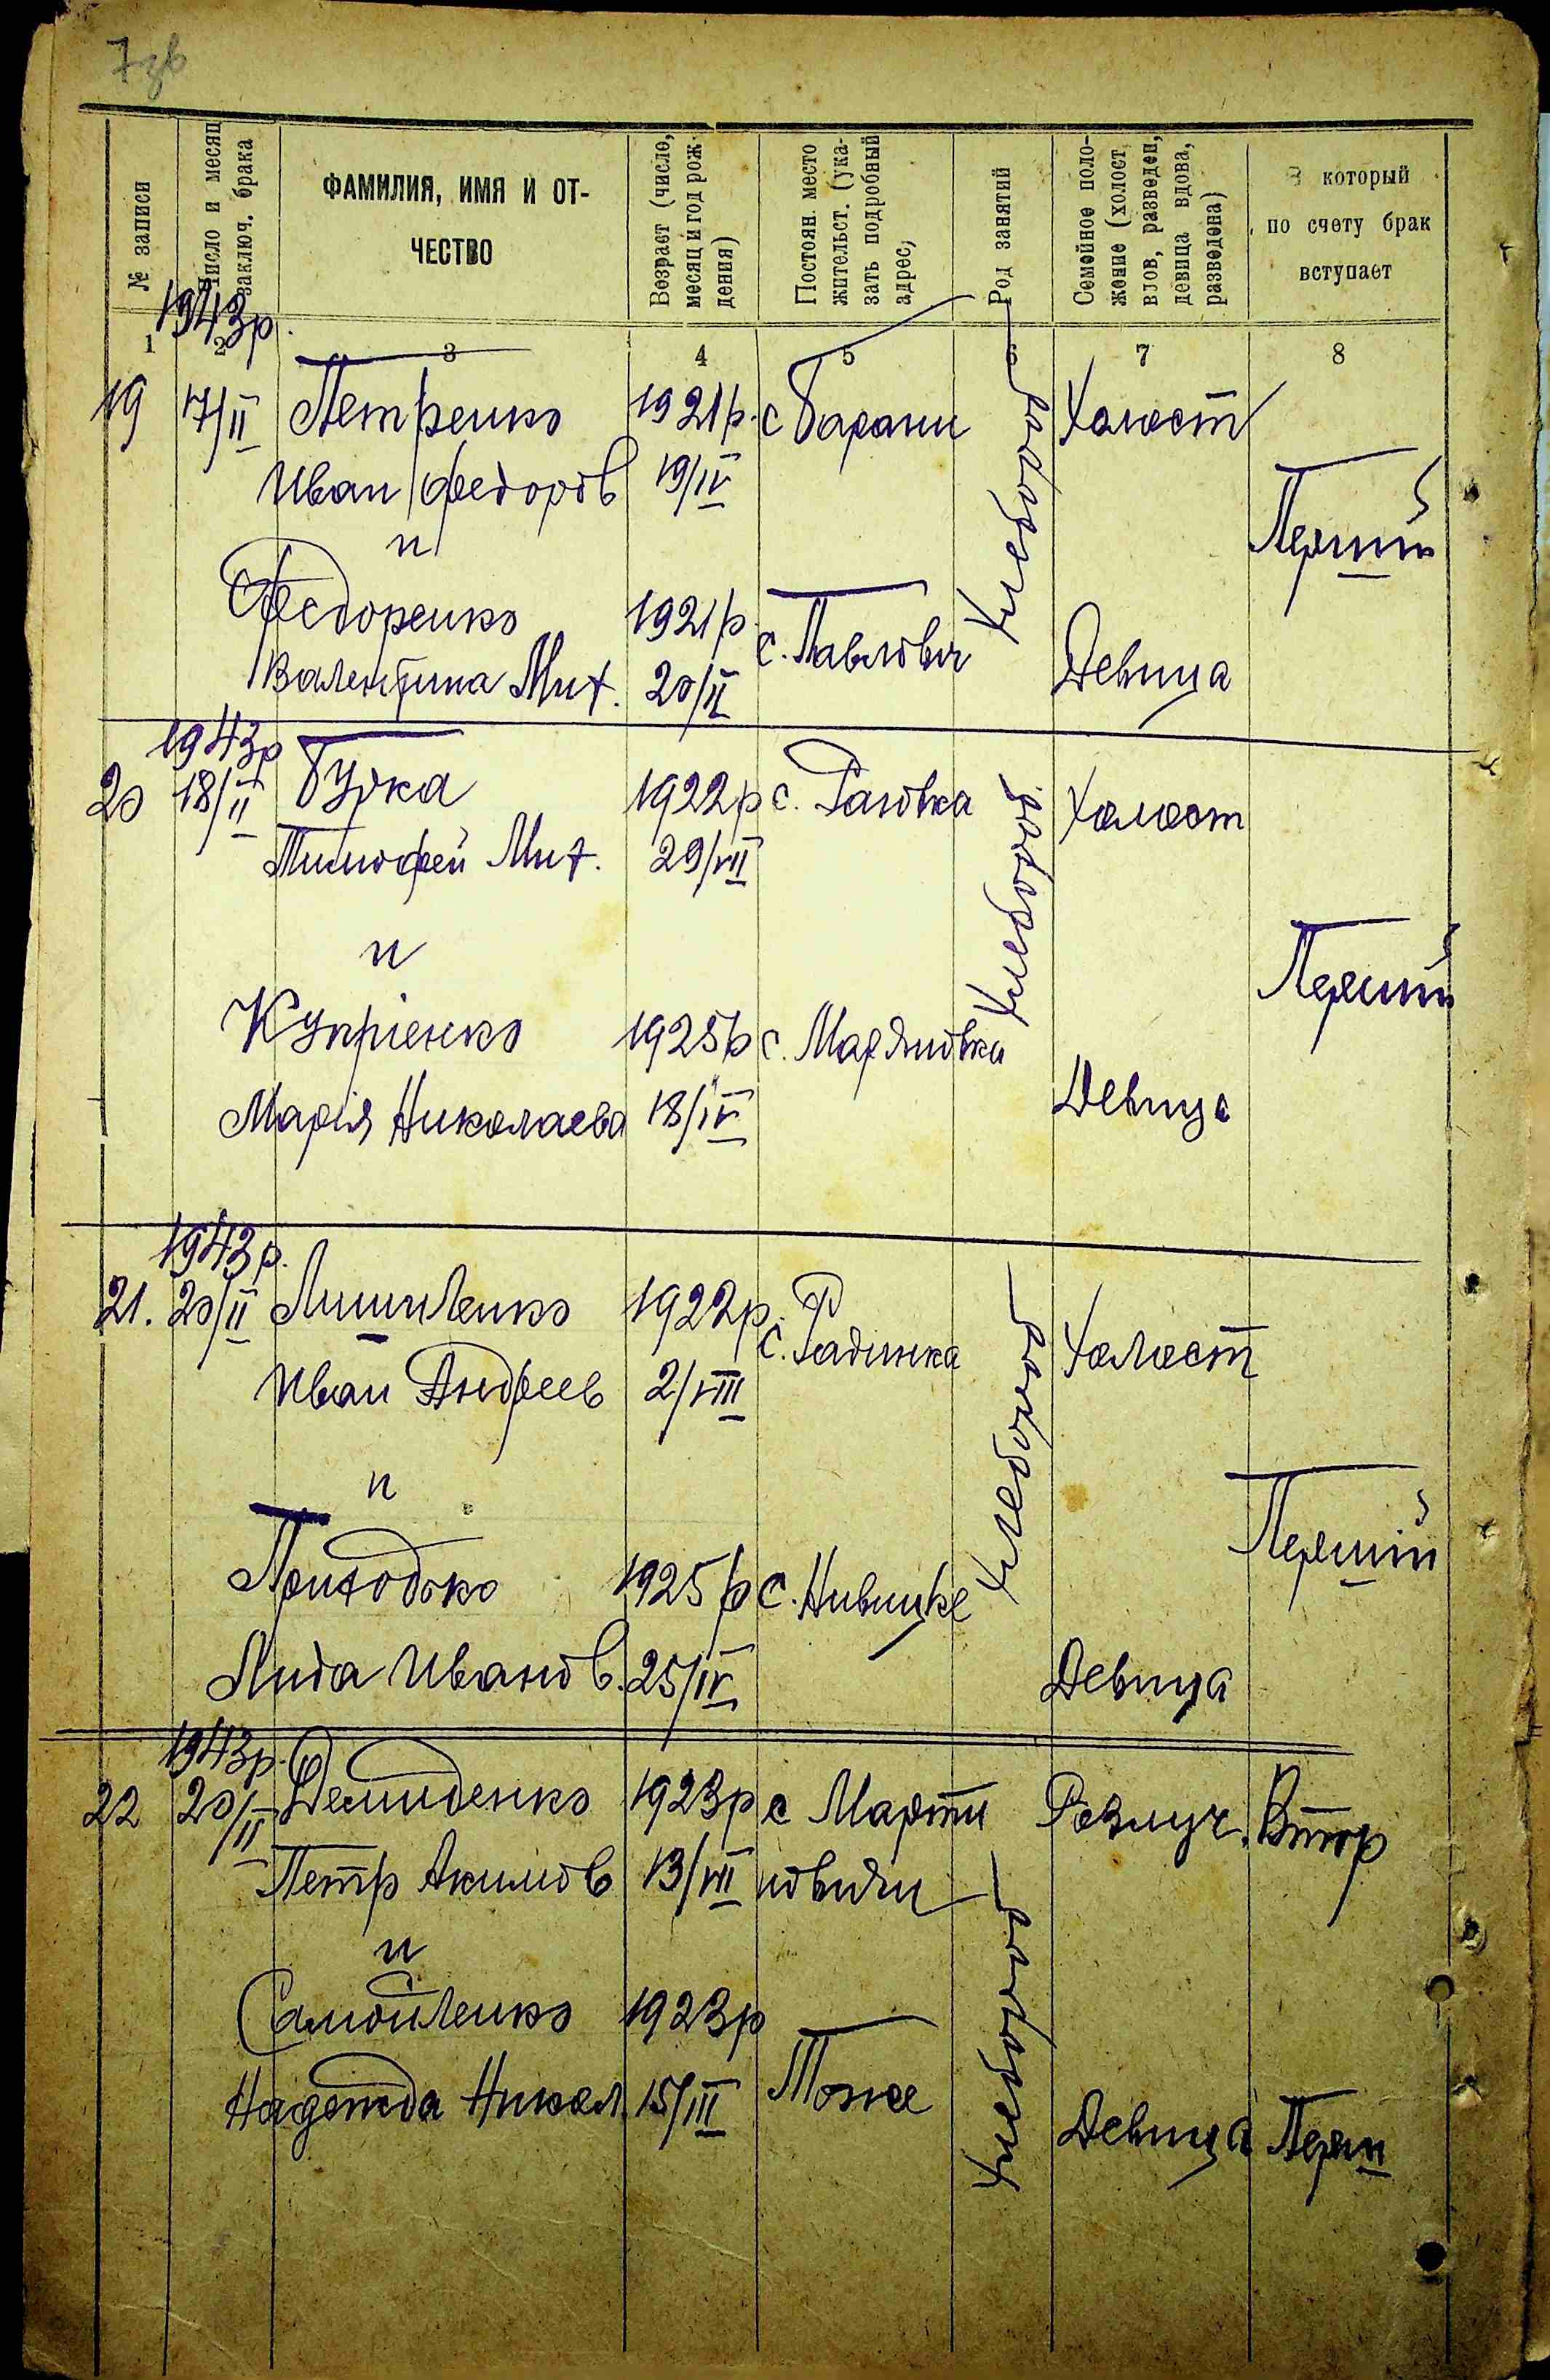 7зв
№ записи
Число и месяц заключ. брака
ФАМИЛИЯ, ИМЯ И ОТ-
ЧЕСТВО
Возраст (число, месяц и год рождения)
Постоян. место жительст. (указать подробный адрес)
Род занятий
Семейное положение (холост, вдов, разведен, девица, вдова, разведена)
В который
по счету брак
вступает
1 2 3 4 5 6 7 8
1943р.
19 17/II Петренко 1921р. с Барани Хлебороб Холост
Иван Федоров 19/IV
и Перший
Федоренко 1921р.
с. Павлович
Валентина Мих. 20/II Девица
1943р
20 18/II Бурка 1922р с. Раговка Хлебороб. Холост
Тимофей Мих. 29/VII
и Перший
Купріенко 1925р с. Марьяновка
Марія Николаева 18/IV Девица
1943р.
21. 20/II 1922р. с. Радинка Хлебороб Холост
Иван Андреев 2/VIII
и Перший
Приходько 1925р с.
Лида Иванов. 25/IV Девица
1943р.
22 20/II Демиденко 1923р с Марти Розлуч. Втор
Петр Акимов 13/VII новичи Хлебороб
и
Самойленко 1923р
Надежда Никол. 15/III Тоже
Девица Перш